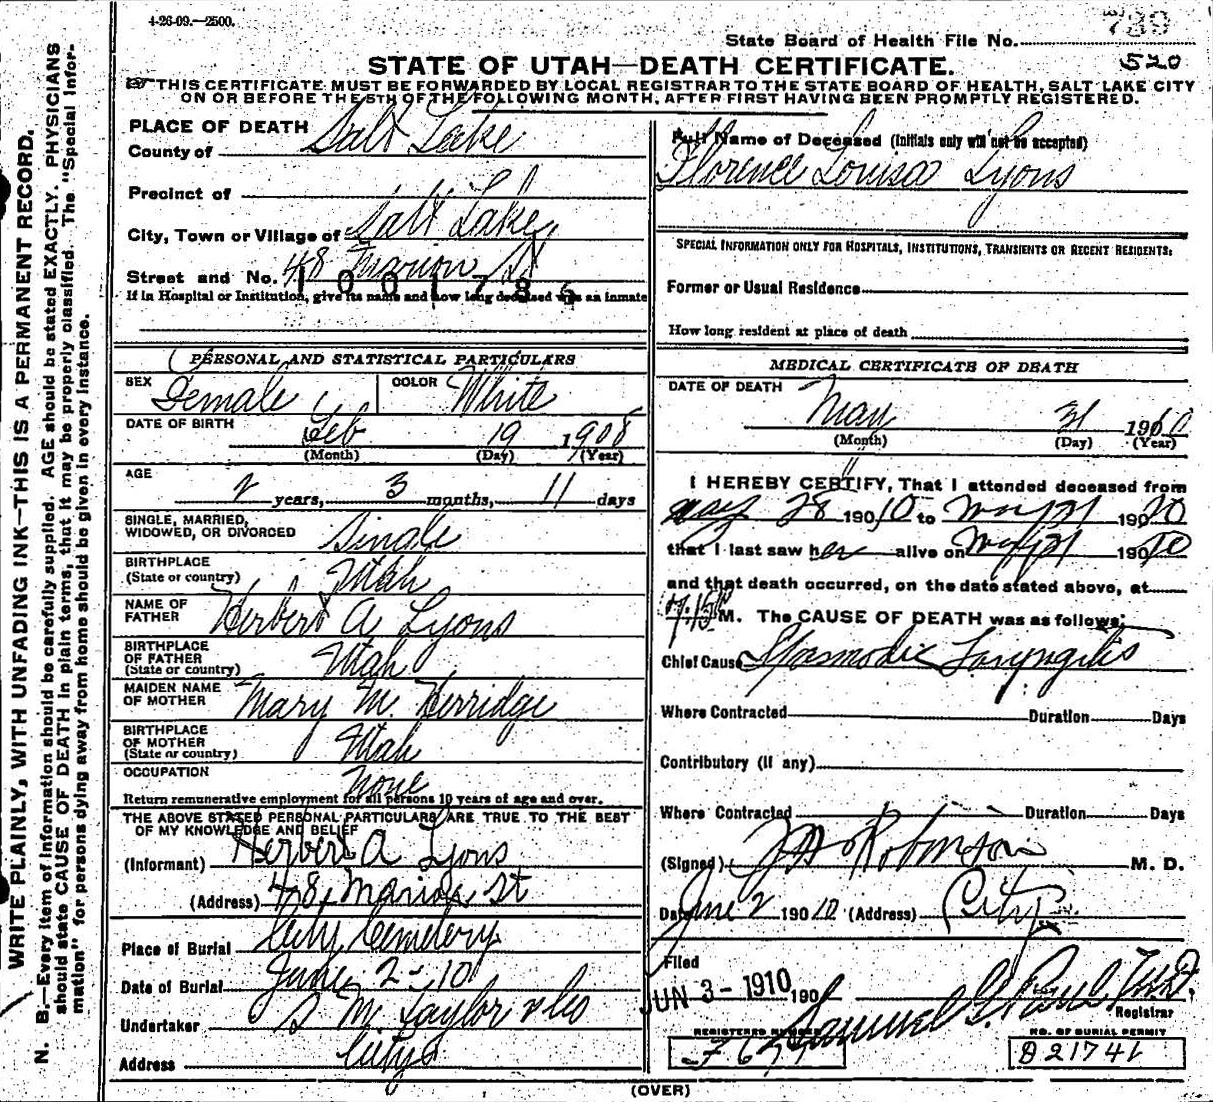 4-26-09.—2500.
789
State Board of Health File No.
520
STATE OF UTAH—DEATH CERTIFICATE.
THIS CERTIFICATE MUST BE FORWARDED BY LOCAL REGISTRAR TO THE STATE BOARD OF HEALTH, SALT LAKE CITY
ON OR BEFORE THE 5TH OF THE FOLLOWING MONTH, AFTER FIRST HAVING BEEN PROMPTLY REGISTERED.
WRITE PLAINLY, WITH UNFADING INK—THIS IS A PERMANENT RECORD.
N. B.—Every item of information should be carefully supplied. AGE should be stated EXACTLY. PHYSICIANS
should state CAUSE OF DEATH in plain terms, that it may be properly classified. The "Special Infor-
mation" for persons dying away from home should be given in every instance.
PLACE OF DEATH
County of Salt Lake
Precinct of
City, Town or Village of Salt Lake
Street and No. 48 Marion St
1001785
If in Hospital or Institution, give its name and how long deceased was an inmate
PERSONAL AND STATISTICAL PARTICULARS
SEX Female COLOR White
DATE OF BIRTH Feb 19 1908
(Month) (Day) (Year)
AGE
2 years, 3 months, 11 days
SINGLE, MARRIED,
WIDOWED, OR DIVORCED Single
BIRTHPLACE
(State or country) Utah
NAME OF
FATHER Herbert A Lyons
BIRTHPLACE
OF FATHER
(State or country) Utah
MAIDEN NAME
OF MOTHER Mary M. Herridge
BIRTHPLACE
OF MOTHER
(State or country) Utah
OCCUPATION None
Return remunerative employment for all persons 10 years of age and over.
THE ABOVE STATED PERSONAL PARTICULARS ARE TRUE TO THE BEST
OF MY KNOWLEDGE AND BELIEF
(Informant) Herbert A Lyons
(Address) 48 Marion St
Place of Burial City Cemetery
Date of Burial June 2-10
Undertaker S M. Taylor & Co
Address City
Full Name of Deceased (Initials only will not be accepted)
Florence Louisa Lyons
SPECIAL INFORMATION ONLY FOR HOSPITALS, INSTITUTIONS, TRANSIENTS OR RECENT RESIDENTS:
Former or Usual Residence
How long resident at place of death
MEDICAL CERTIFICATE OF DEATH
DATE OF DEATH May 31 1910
(Month) (Day) (Year)
I HEREBY CERTIFY, That I attended deceased from
May 28 190 10 to May 31 190 10
that I last saw her alive on May 31 190 10
and that death occurred, on the date stated above, at
7.15 M. The CAUSE OF DEATH was as follows:
Chief Cause Spasmodic Laryngitis
Where Contracted Duration Days
Contributory (if any)
Where Contracted Duration Days
(Signed) Robinson M. D.
Date June 2 190 10 (Address) City
Filed
JUN 3-1910 190 Samuel G. Paul M.D.
Registrar
REGISTERED NUMBER
NO. OF BURIAL PERMIT
D 21741
(OVER)